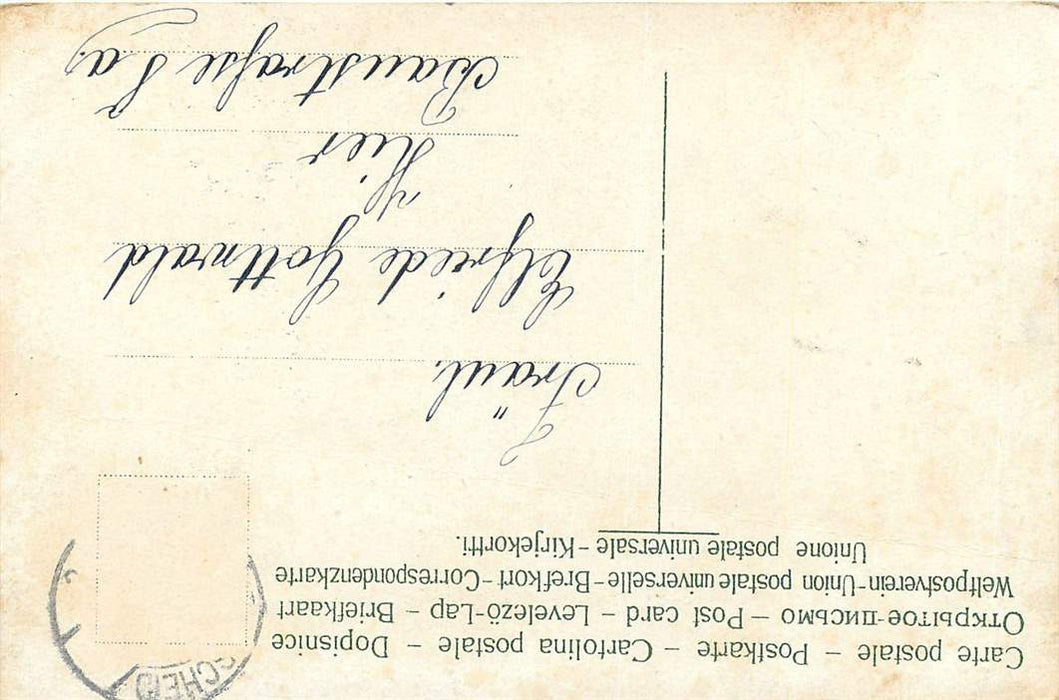 Carte postale – Postkarte – Cartolina postale – Dopisnice
Открытое письмо – Post card – Levelező-Lap – Briefkaart
Weltpostverein-Union postale universelle-Brefkort-Correspondenzkarte
Unione postale universale-Kirjekortti.
Fräul.
Elfriede Gottwald
Hier
Baustraße